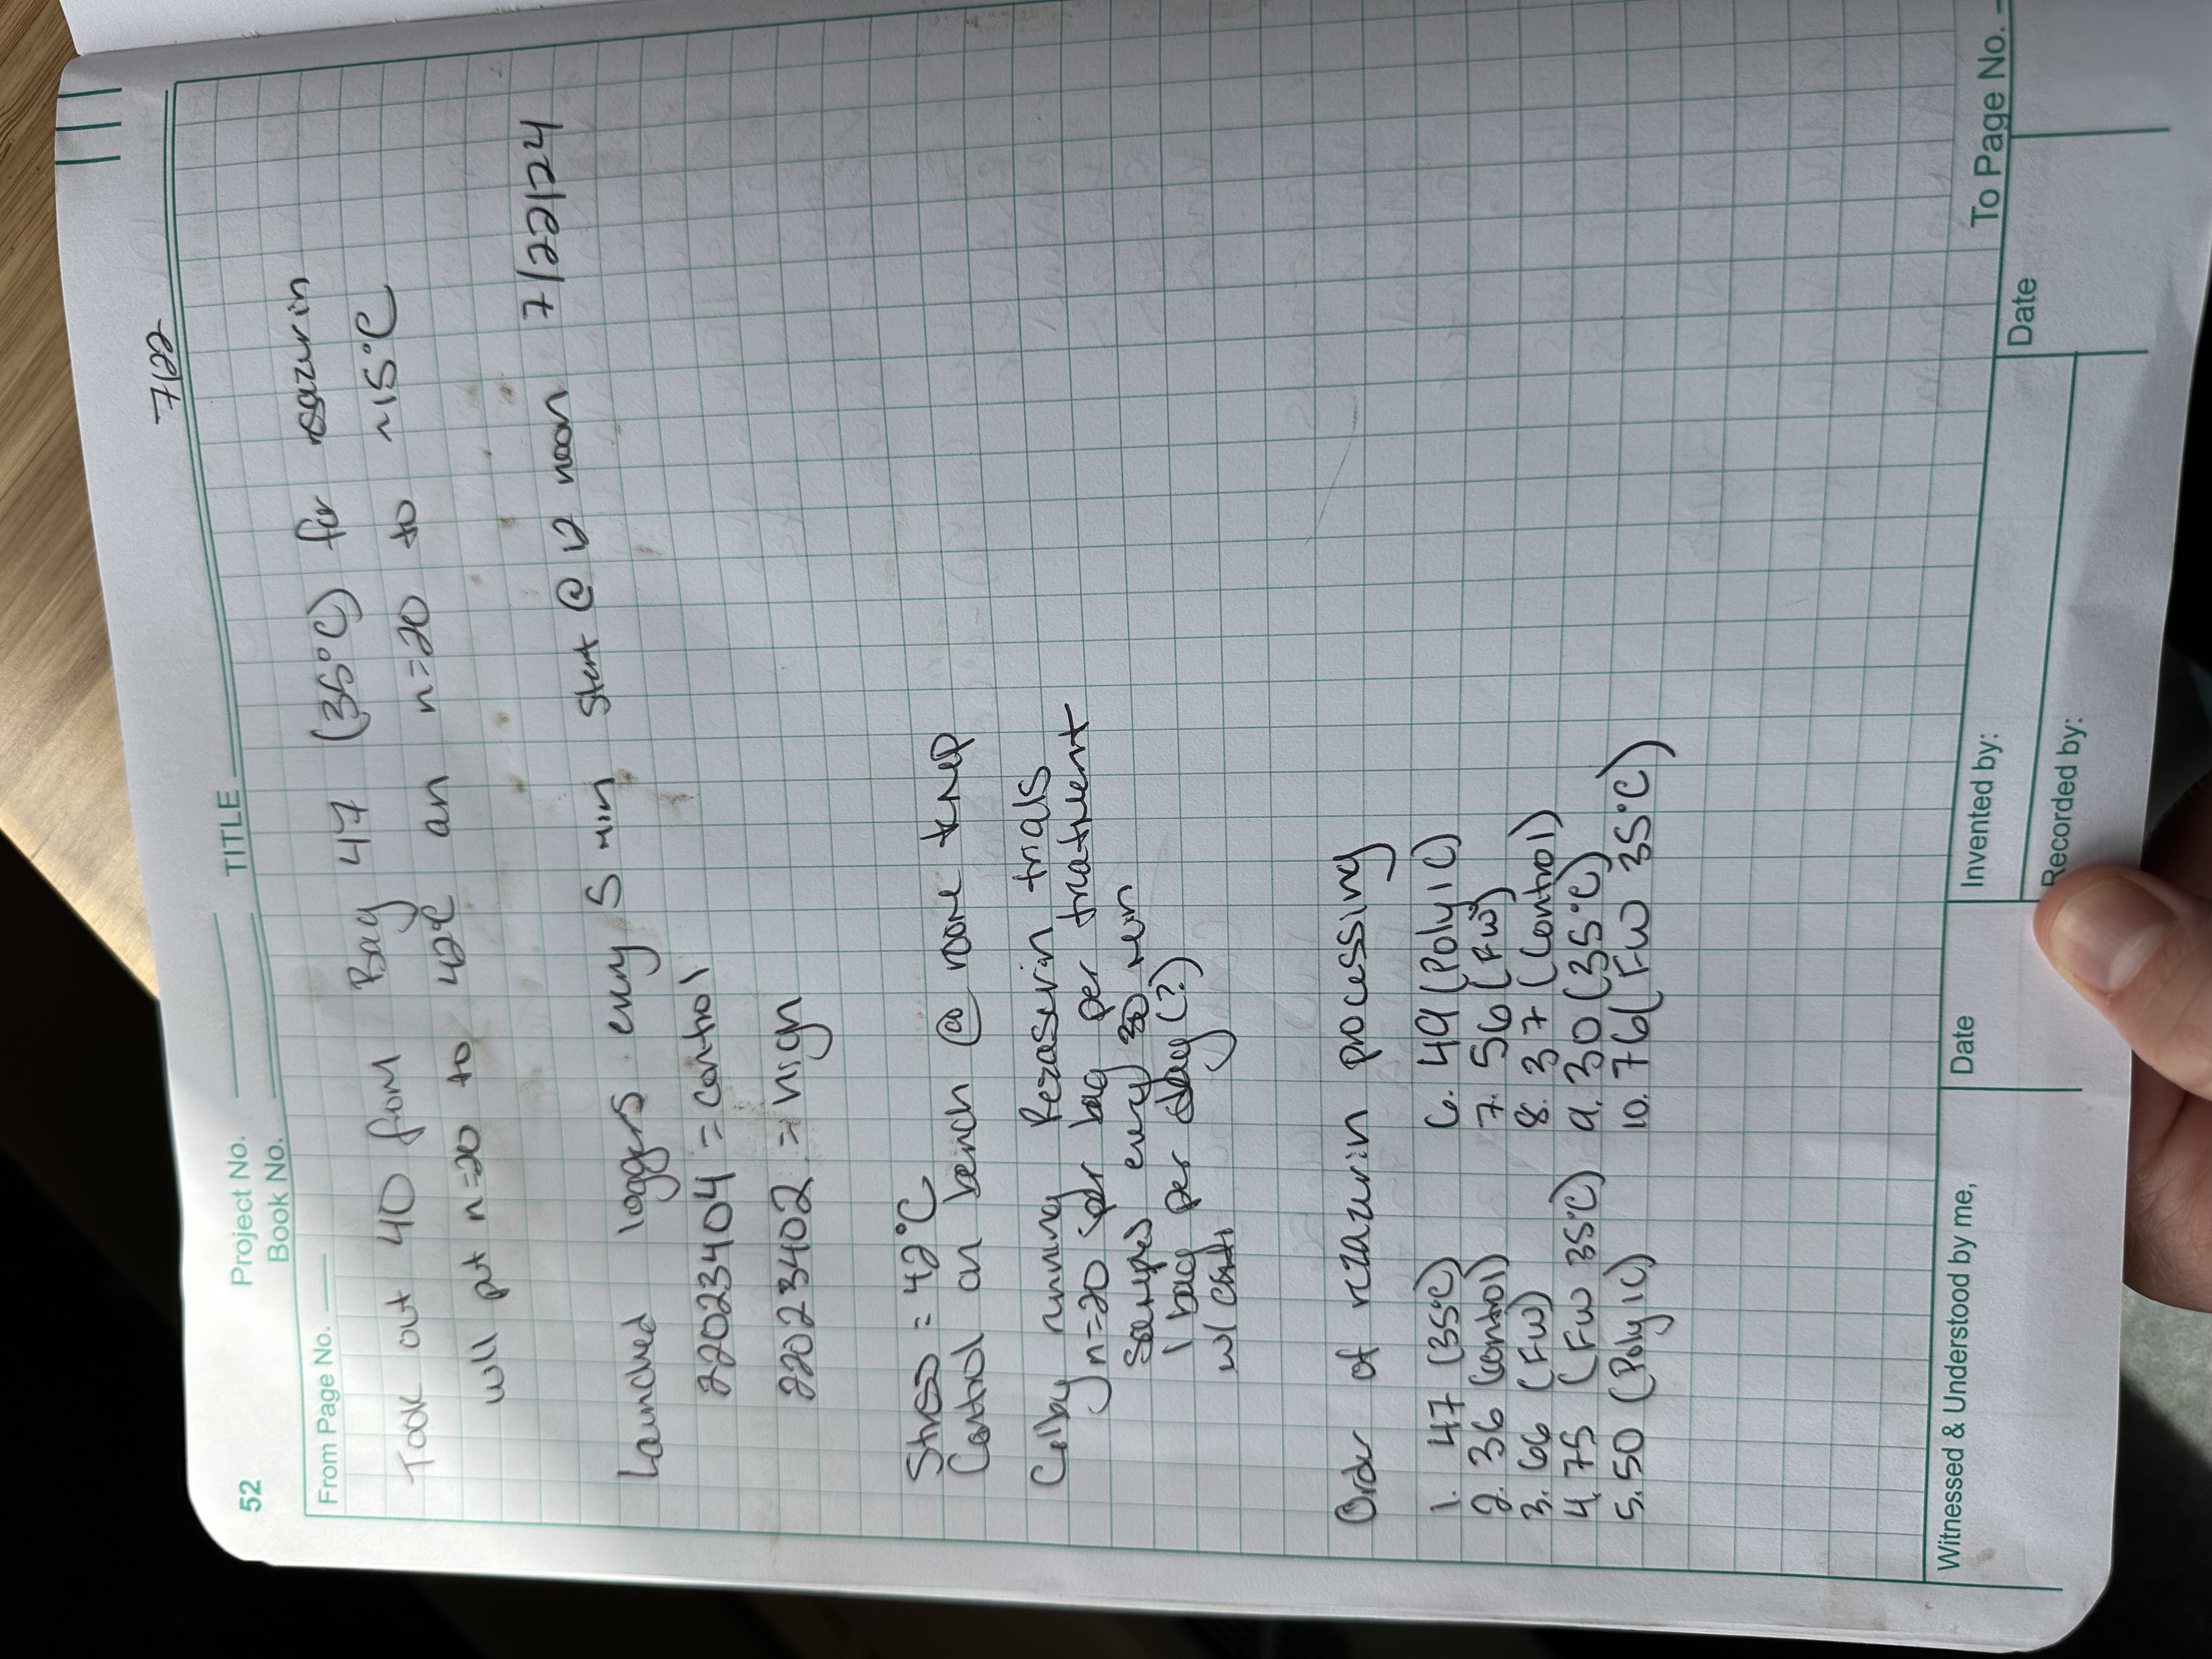 7/22
52 Project No. TITLE
Book No.
From Page No.
Took out 40 from Bag 47 (35°C) for resazurin
will put n=20 to 42°C an n=20 to ~15°C
Launched loggers every 5 min start @ 12 noon 7/22/24
22023404 = control
22023402 = high
Stress = 42°C
Control on bench @ room temp
Colby running Rezaserin trials
n=20 per bag per treatment
samples every 30 min
1 bag per day (?)
w/
Order of rezazurin processing
1. 47 (35°C) 6. 49 (Poly IC)
2. 36 (control) 7. 56 (FW)
3. 66 (FW) 8. 37 (Control)
4. 75 (FW 35°C) 9. 30 (35°C)
5. 50 (Poly IC) 10. 76 (FW 35°C)
Witnessed & Understood by me, Date Invented by: To Page No.
Date
Recorded by: